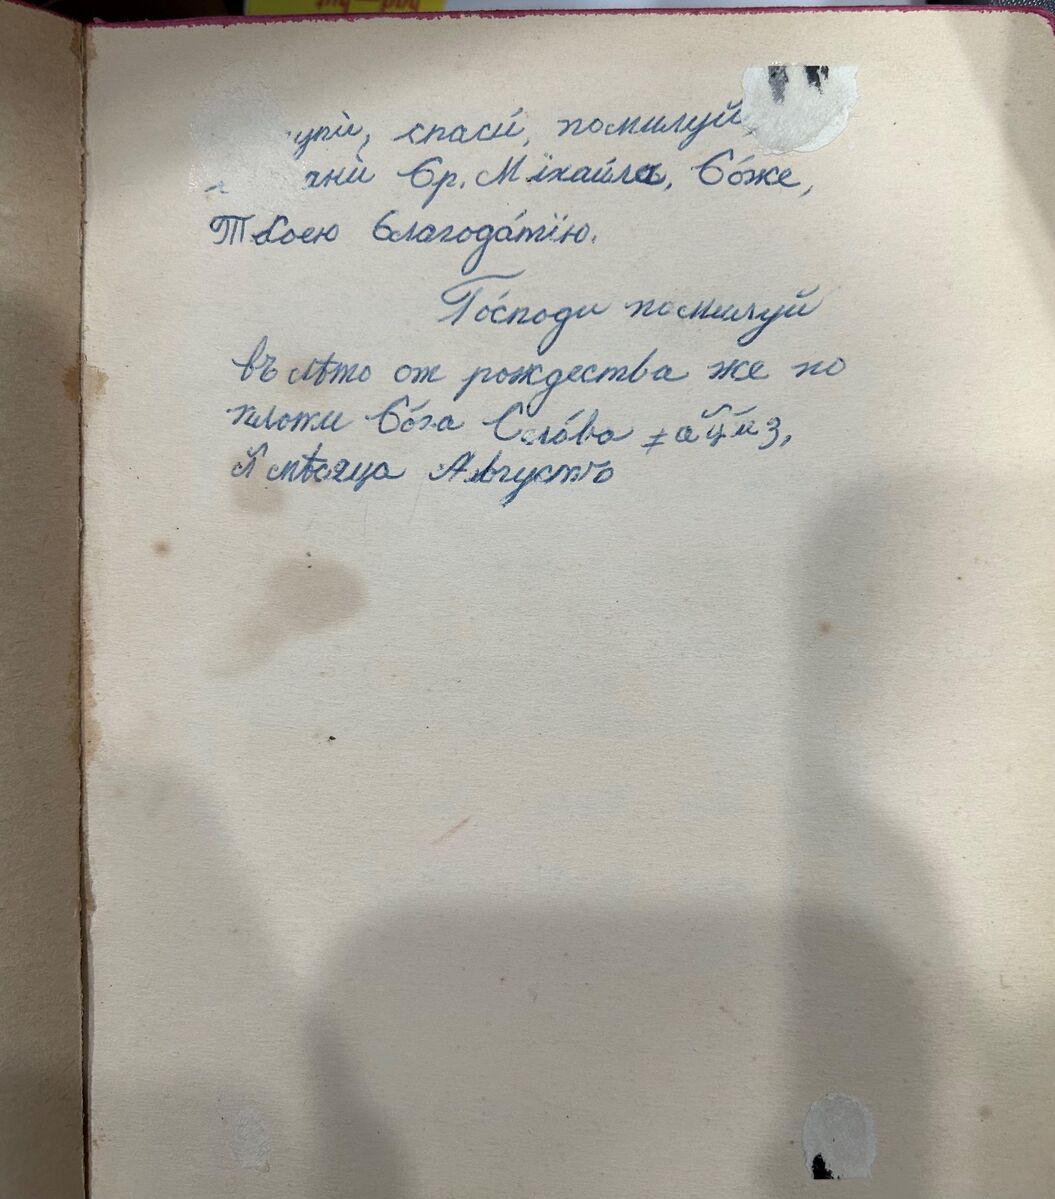 спаси́, помилуй
бр. Міхаи́ла, Бо́же,
Твоею благода́тїю.
Го́споди помилуй
въ лѣто от рождества же по
плоти Бо́га Сло́ва
мѣсяца Августъ